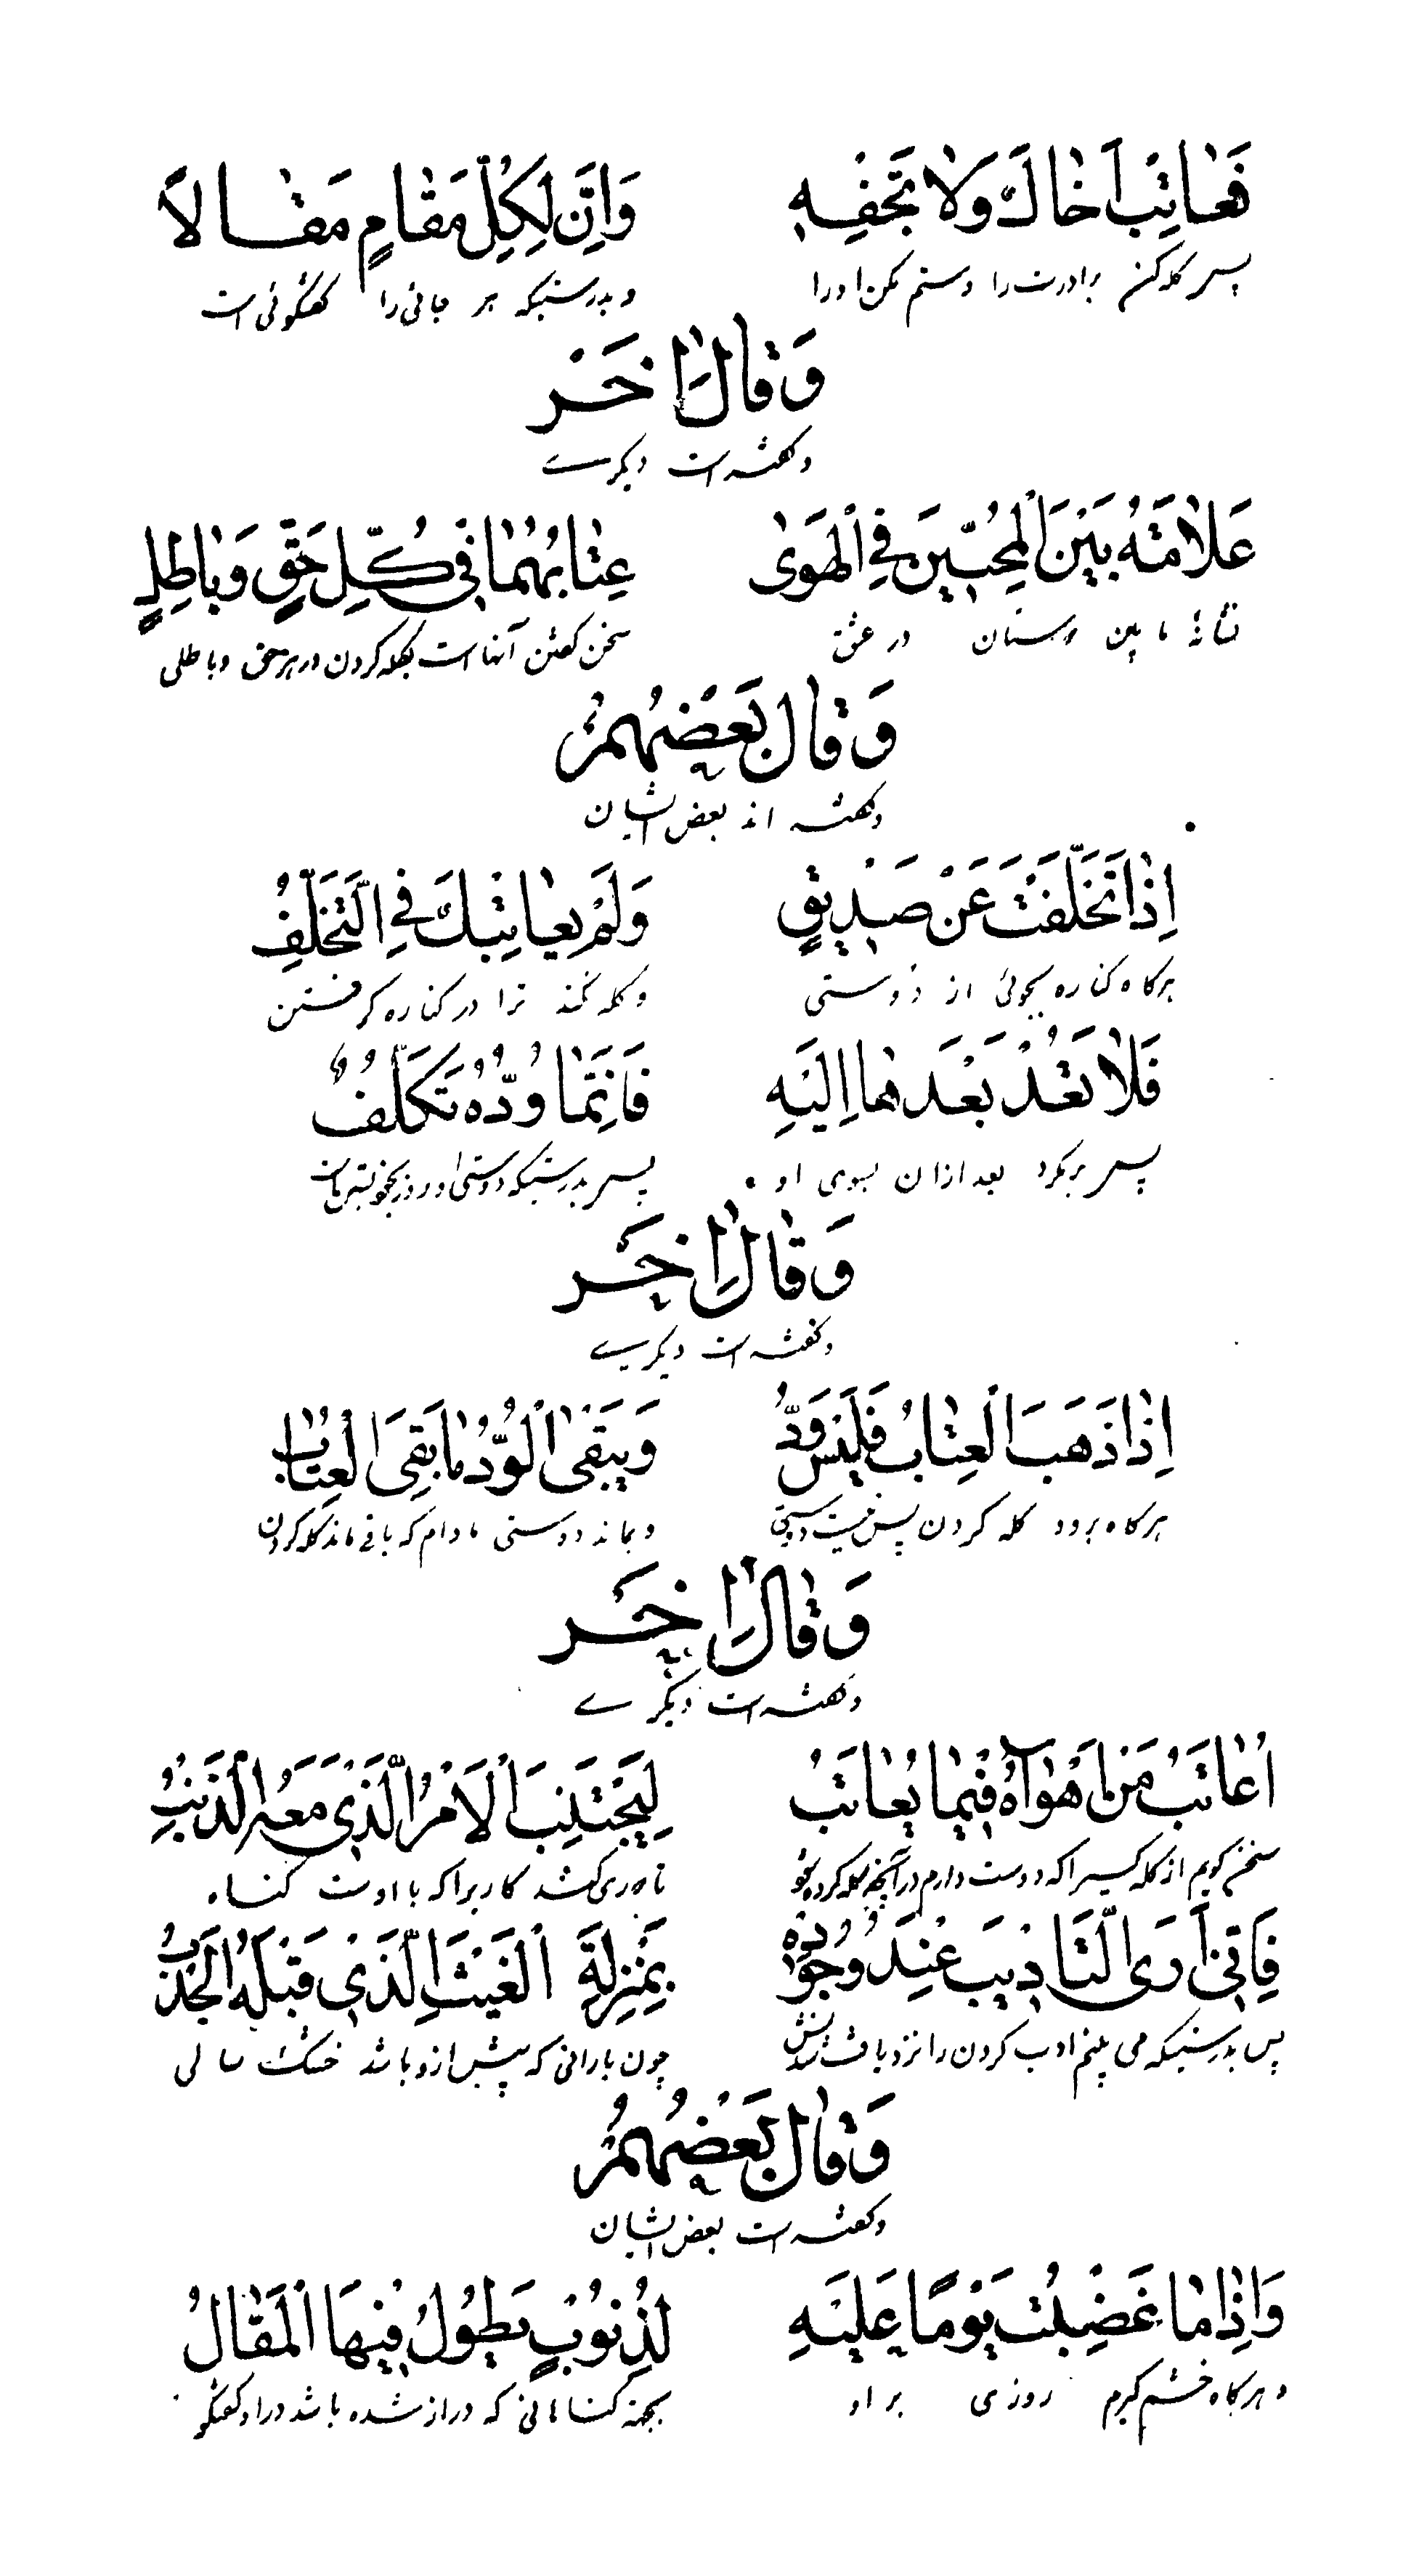 فَعَاتِبْ اَخَاكَ وَلَا تَجْفِهِ وَاِنَّ لِكُلِّ مَقَامٍ مَقَالًا
پس گله کن برادرت را و ستم مکن او را و بدرستیکه هر جائی را گفتگوئی است
وَقَالَ اٰخَر
و گفته است دیگرے
عَلَامَتُهُ بَيْنَ الْمُحِبِّينَ فِي الْهَوٰى عِتَابُهُمَا فِي كُلِّ حَقٍّ وَبَاطِلٍ
نشانهٔ ما بین دوستان در عشق سخن گفتن آنها است بگله کردن در هر حق و باطلی
وَقَالَ بَعْضُهُمْ
و گفته اند بعض ایشان
اِذَا تَخَلَّفْتَ عَنْ صَدِيقٍ وَلَمْ يُعَاتِبْكَ فِي التَّخَلُّفِ
هرگاه کناره بجوئی از دوستی و گله نکند ترا در کناره گرفتن
فَلَا تَعُدْ بَعْدَهَا اِلَيْهِ فَاِنَّمَا وُدُّهُ تَكَلُّفٌ
پس برنگرد بعد ازان بسوی او پس بدرستیکه دوستی او
وَقَالَ اٰخَر
و گفته است دیگرے
اِذَا ذَهَبَ الْعِتَابُ فَلَيْسَ وُدٌّ وَيَبْقَى الْوُدُّ مَا بَقِيَ الْعِتَابُ
هرگاه برود گله کردن پس نیست دوستی و بماند دوستی مادام که باقی ماند گله کردن
وَقَالَ اٰخَر
و گفته است دیگرے
اُعَاتِبُ مَنْ اَهْوَاهُ فِيمَا يُعَاتَبُ لِيَجْتَنِبَ الْاَمْرَ الَّذِي مَعَهُ الذَّنْبُ
سخن گویم از گله کسیرا که دوست دارم در آنچه گله کرده شود تا دوری کشد کاریرا که با اوست گناه
فَاِنِّي اَرَى التَّادِيبَ عِنْدَ وُجُودِهِ بِمَنْزِلَةِ الْغَيْثِ الَّذِي قَبْلَهُ الْجَدْبُ
پس بدرستیکه می بینم ادب کردن را نزد یافت شدنش چون بارانی که پیش ازو باشد خشک سالی
وَقَالَ بَعْضُهُمْ
و گفته است بعض ایشان
وَاِذَا مَا غَضِبْتُ يَوْمًا عَلَيْهِ لِذُنُوبٍ يَطُولُ فِيهَا الْمَقَالُ
و هرگاه خشم گیرم روزی بر او بجهة گناهانی که دراز شده باشد در او گفتگو